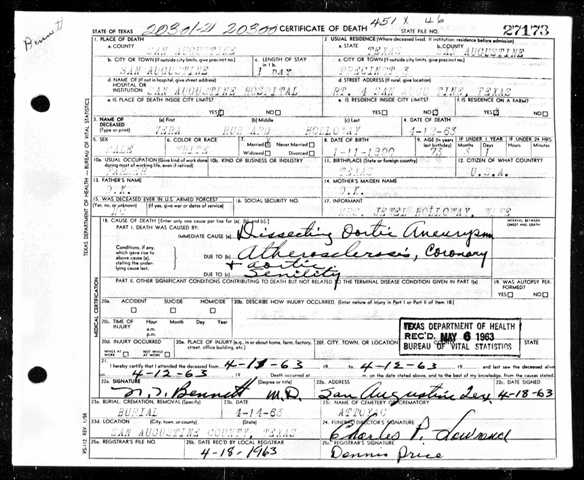 Bennett
STATE OF TEXAS 20301-21 20300 CERTIFICATE OF DEATH 451 X 46 STATE FILE NO. 27173
1. PLACE OF DEATH 2. USUAL RESIDENCE (Where deceased lived. If institution: residence before admission)
a. COUNTY SAN AUGUSTINE a. STATE TEXAS b. COUNTY SAN AUGUSTINE
b. CITY OR TOWN (If outside city limits, give precinct no.) c. LENGTH OF STAY in 1 b. c. CITY OR TOWN (If outside city limits, give precinct no.)
SAN AUGUSTINE 1 DAY PRECINCT
d. NAME OF (If not in hospital, give street address) HOSPITAL OR INSTITUTION SAN AUGUSTINE HOSPITAL d. STREET ADDRESS (If rural, give location)
RT. 4 SAN AUGUSTINE, TEXAS
e. IS PLACE OF DEATH INSIDE CITY LIMITS? YES NO e. IS RESIDENCE INSIDE CITY LIMITS? YES NO f. IS RESIDENCE ON A FARM? YES NO
3. NAME OF DECEASED (Type or print) (a) First (b) Middle (c) Last 4. DATE OF DEATH
HOLLOWAY 4-12-63
5. SEX 6. COLOR OR RACE 7. Married Never Married Widowed Divorced 8. DATE OF BIRTH 9. AGE (In years last birthday) IF UNDER 1 YEAR IF UNDER 24 HRS.
WHITE 73 3 1
10a. USUAL OCCUPATION (Give kind of work done 10b. KIND OF BUSINESS OR INDUSTRY 11. BIRTHPLACE (State or foreign country) 12. CITIZEN OF WHAT COUNTRY?
TEXAS U.S.A.
13. FATHER'S NAME 14. MOTHER'S MAIDEN NAME
D.K. D.K.
15. WAS DECEASED EVER IN U.S. ARMED FORCES? 16. SOCIAL SECURITY NO. 17. INFORMANT
(Yes, no, or unknown) (If yes, give war or dates of service)
NO HOLLOWAY,
18. CAUSE OF DEATH [Enter only one cause per line for (a), (b), and (c).] INTERVAL BETWEEN ONSET AND DEATH
PART I. DEATH WAS CAUSED BY:
IMMEDIATE CAUSE (a) Dissecting Aortic Aneurysm
Conditions, if any, which gave rise to above cause (a), stating the underlying cause last.
DUE TO (b) Atherosclerosis, Coronary
+ aortic
DUE TO (c) Senility
PART II. OTHER SIGNIFICANT CONDITIONS CONTRIBUTING TO DEATH BUT NOT RELATED TO THE TERMINAL DISEASE CONDITION GIVEN IN PART I(a) 19. WAS AUTOPSY PERFORMED?
YES NO
20a. ACCIDENT SUICIDE HOMICIDE 20b. DESCRIBE HOW INJURY OCCURRED. (Enter nature of injury in Part I or Part II of item 18)
20c. TIME OF INJURY Hour Month Day Year
a.m.
p.m.
20d. INJURY OCCURRED 20e. PLACE OF INJURY (e.g. in or about home, farm, factory, street, office building, etc.) 20f. CITY, TOWN, OR LOCATION
TEXAS DEPARTMENT OF HEALTH
REC'D MAY 6 1963
BUREAU OF VITAL STATISTICS
21. I hereby certify that I attended the deceased from 4-11-63 to 4-12-63 and last saw the deceased alive
on 4-12-63 Death occurred at m. on the date stated above, and to the best of my knowledge, from the causes stated.
22a. SIGNATURE (Degree or title) 22b. ADDRESS 22c. DATE SIGNED
Bennett M.D. San Augustine Tex 4-18-63
23a. BURIAL, CREMATION, REMOVAL (Specify) 23b. DATE 23c. NAME OF CEMETERY OR CREMATORY
BURIAL 4-14-63 ATTOYAC
23d. LOCATION (City, town, or county) (State) 24. FUNERAL DIRECTOR'S SIGNATURE
SAN AUGUSTINE COUNTY, TEXAS Charles P.
25a. REGISTRAR'S FILE NO. 25b. DATE REC'D BY LOCAL REGISTRAR 25c. REGISTRAR'S SIGNATURE
4-18-1963 Dennis Price
TEXAS DEPARTMENT OF HEALTH — BUREAU OF VITAL STATISTICS
MEDICAL CERTIFICATION
VS-112 REV. 1/58